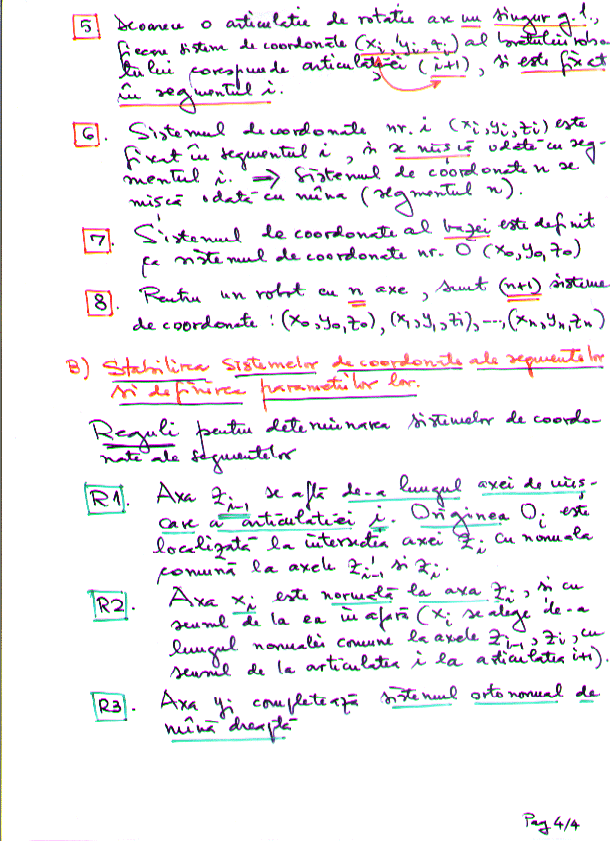 5 Deoarece o articulatie de rotatie are un singur g.l.,
fiecare sistem de coordonate (xi, yi, zi) al bratului robo-
tului corespunde articulatiei (i+1), si este fixat
în segmentul i.
6. Sistemul de coordonate nr. i (xi, yi, zi) este
fixat în segmentul i, si se miscă odată cu seg-
mentul i. ⇒ Sistemul de coordonate n se
miscă odată cu mîna (segmentul n).
7. Sistemul de coordonate al bazei este definit
ca sistemul de coordonate nr. 0 (x0, y0, z0)
8. Pentru un robot cu n axe, sunt (n+1) sisteme
de coordonate : (x0, y0, z0), (x1, y1, z1), ---, (xn, yn, zn)
B) Stabilirea sistemelor de coordonate ale segmentelor
si definirea parametrilor lor.
Reguli pentru determinarea sistemelor de coordo-
nate ale segmentelor
R1. Axa zi-1 se află de-a lungul axei de mis-
care a articulatiei i. Originea Oi este
localizată la intersectia axei zi cu normala
comună la axele zi-1 si zi.
R2. Axa xi este normală la axa zi, si cu
sensul de la ea în afară (xi se alege de-a
lungul normalei comune la axele zi-1, zi, cu
sensul de la articulatia i la articulatia i+1).
R3. Axa yi completează sistemul ortonormal de
mînă dreaptă
Pag 4/4